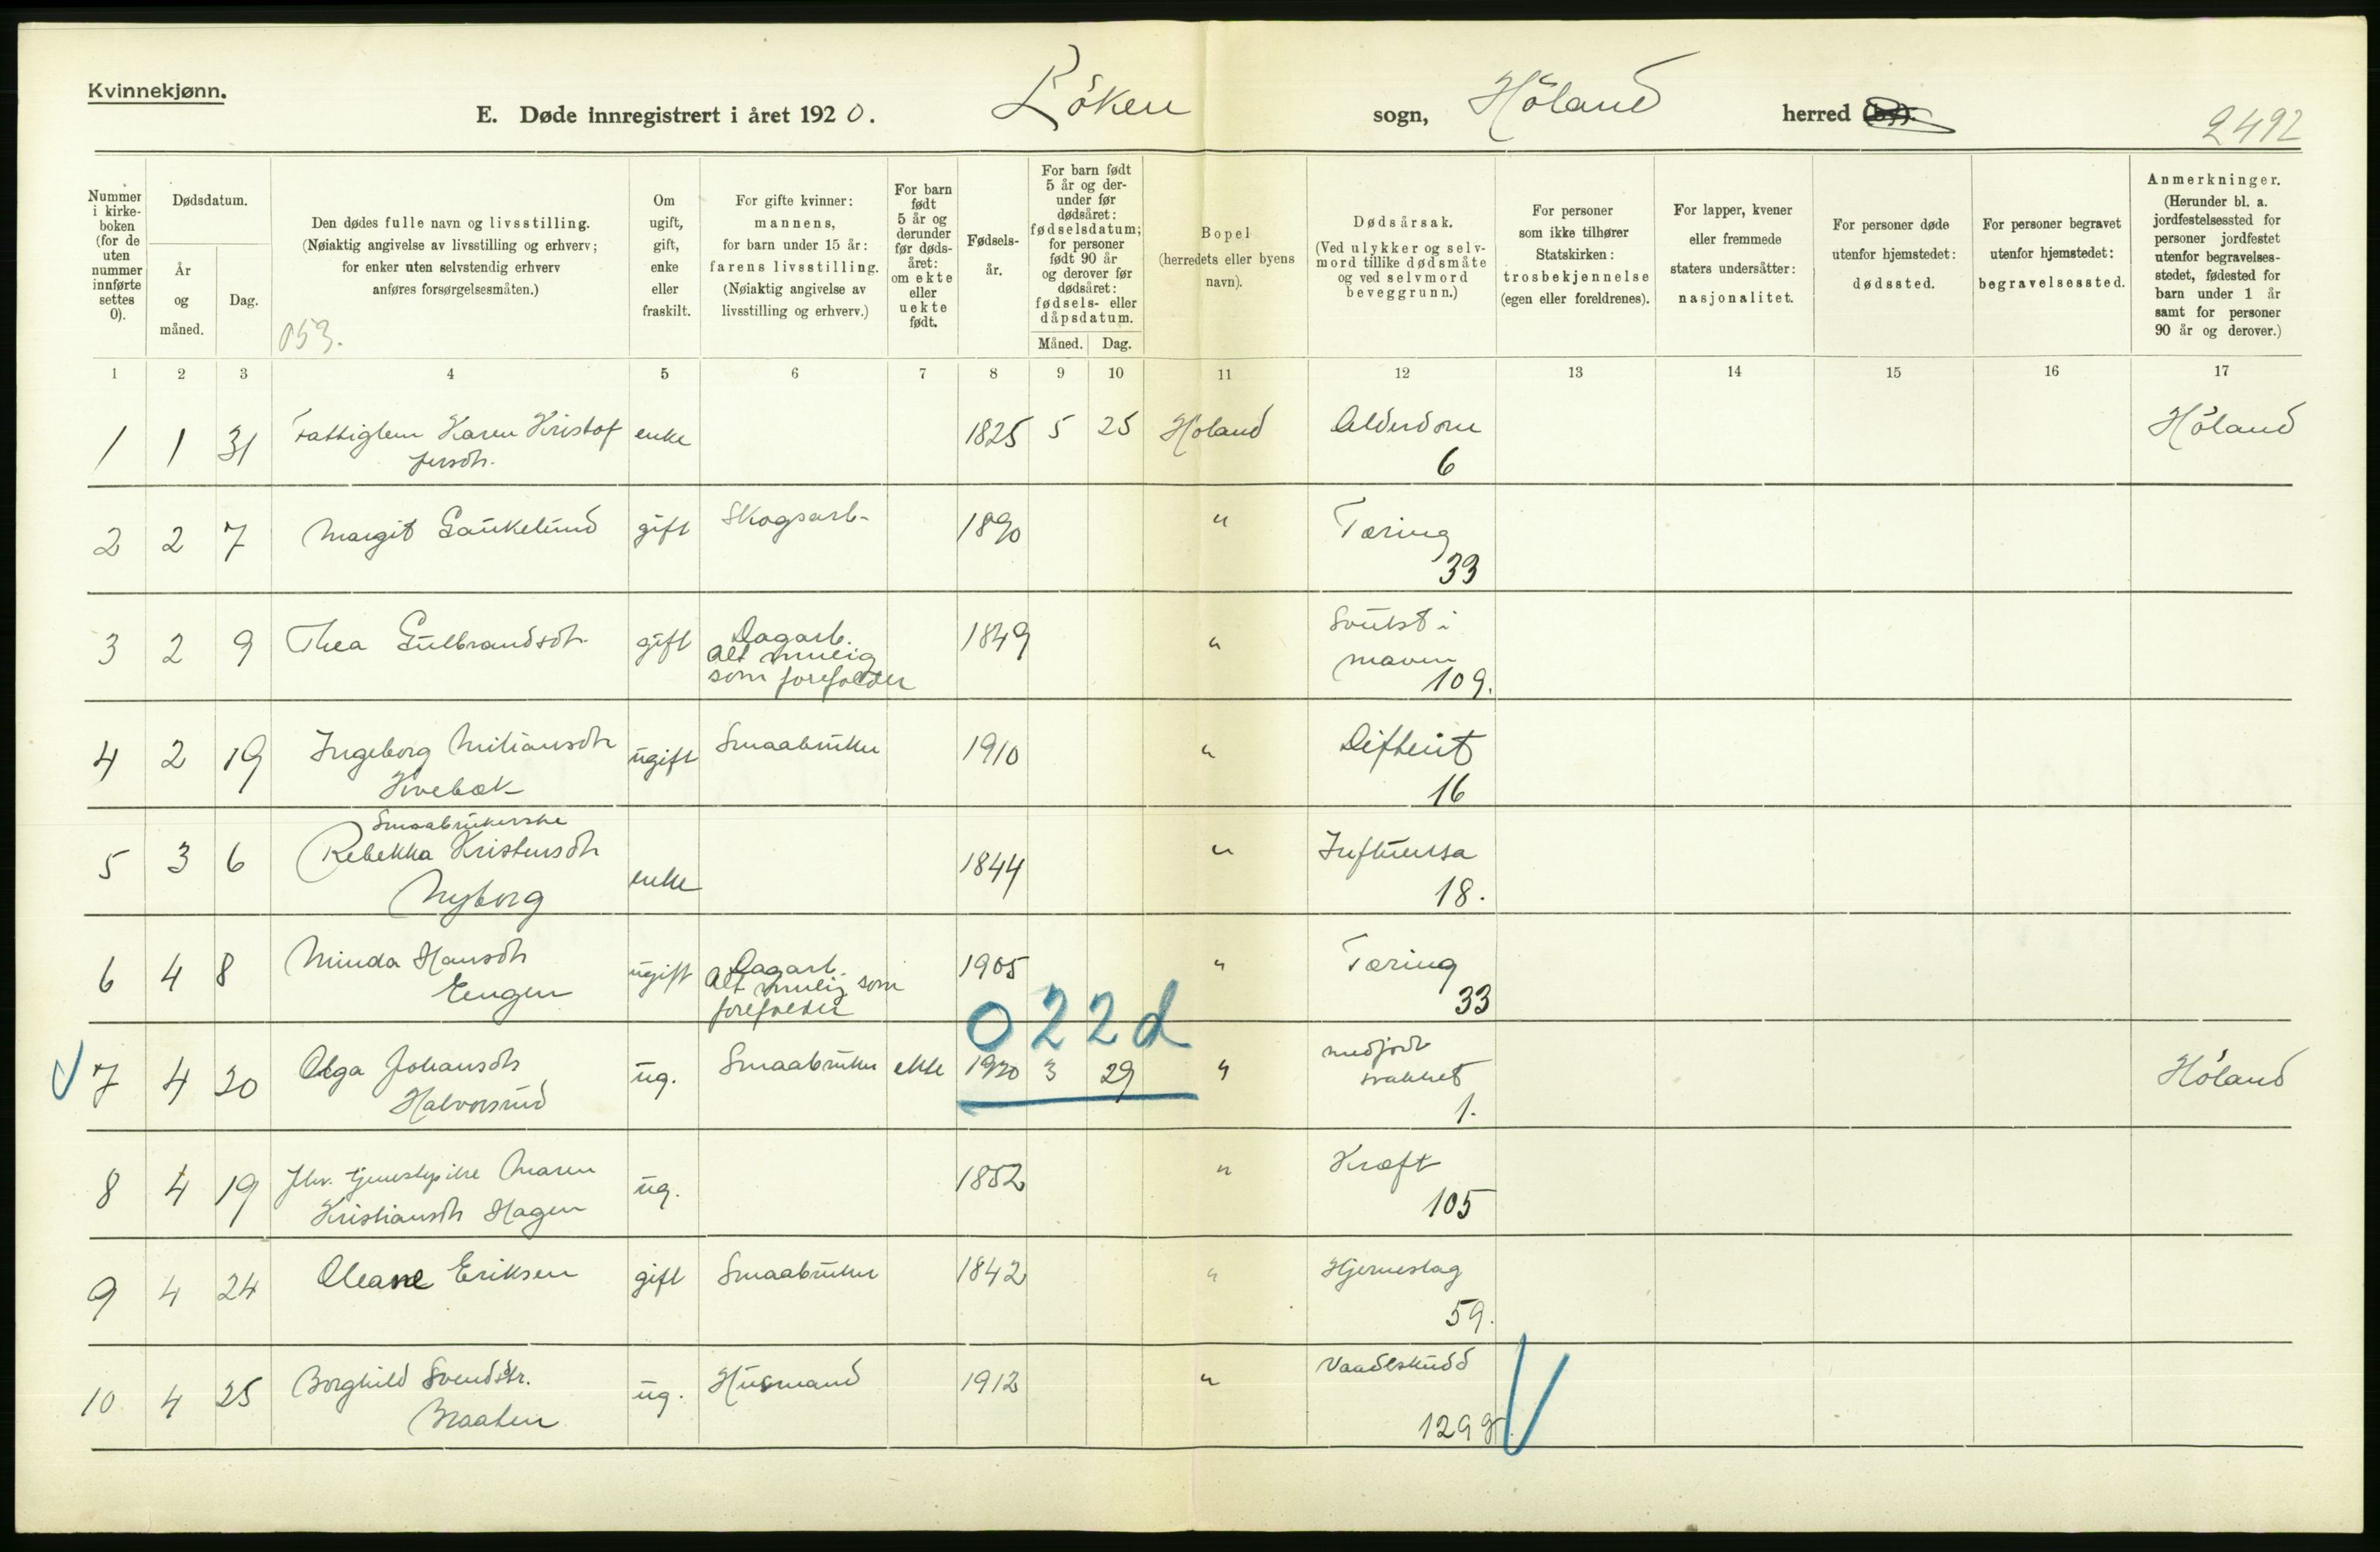 Kvinnekjønn.
E. Døde innregistrert i året 1920.
Löken sogn, Höland herred (by).
2492
Nummer i kirke-boken (for de uten nummer innførte settes 0).
Dødsdatum.
År og måned.
Dag.
Den dødes fulle navn og livsstilling.
(Nøiaktig angivelse av livsstilling og erhverv;
for enker uten selvstendig erhverv
anføres forsørgelsesmåten.)
053.
Om ugift, gift, enke eller fraskilt.
For gifte kvinner: mannens, for barn under 15 år: farens livsstilling. (Nøiaktig angivelse av livsstilling og erhverv.)
For barn født 5 år og derunder før døds-året: om ekte eller uekte født.
Fødsels-år.
For barn født 5 år og der-under før dødsåret: fødselsdatum; for personer født 90 år og derover før dødsåret: fødsels- eller dåpsdatum.
Måned. Dag.
Bopel (herredets eller byens navn).
Dødsårsak. (Ved ulykker og selv-mord tillike dødsmåte og ved selvmord beveggrunn.)
For personer som ikke tilhører Statskirken: trosbekjennelse (egen eller foreldrenes).
For lapper, kvener eller fremmede staters undersåtter: nasjonalitet.
For personer døde utenfor hjemstedet: dødssted.
For personer begravet utenfor hjemstedet: begravelsessted.
Anmerkninger. (Herunder bl. a. jordfestelsessted for personer jordfestet utenfor begravelses-stedet, fødested for barn under 1 år samt for personer 90 år og derover.)
1 2 3 4 5 6 7 8 9 10 11 12 13 14 15 16 17
1 1 31 Fattiglem Karen Kristof enke 1825 5 25 Höland Alderdom Höland
fersdtr. 6
2 2 7 Margit Gaukelund gift Skogsarb. 1890 " Tæring
33
3 2 9 Thea Gulbrandsdtr gift Dagarb. 1849 " Svulst i
Alt mulig maven
som forefalder 109.
4 2 19 Ingeborg Miliansdtr ugift Smaabruker 1910 " Difterit
Kvebæk 16
Smaabrukerske
5 3 6 Rebekka Kristensdtr enke 1844 " Influensa
Nyborg 18.
6 4 8 Minda Hansdtr ugift Dagarb. 1905 " Tæring
Engen Alt mulig som
forefalder 33
022d
7 4 20 Olga Johansdtr ug. Smaabruker ekte 1920 3 29 " medfödt Höland
Halvorsrud svakhet
1.
8 4 19 Fhv. tjenestepike Maren ug. 1852 " Kræft
Kristiansdtr Hagen 105
9 4 24 Oleane Eriksen gift Smaabruker 1842 " Hjerneslag
59.
10 4 25 Borghild Svendsdtr. ug. Husmand 1912 " Vaadeskudd
Braaten 129 g